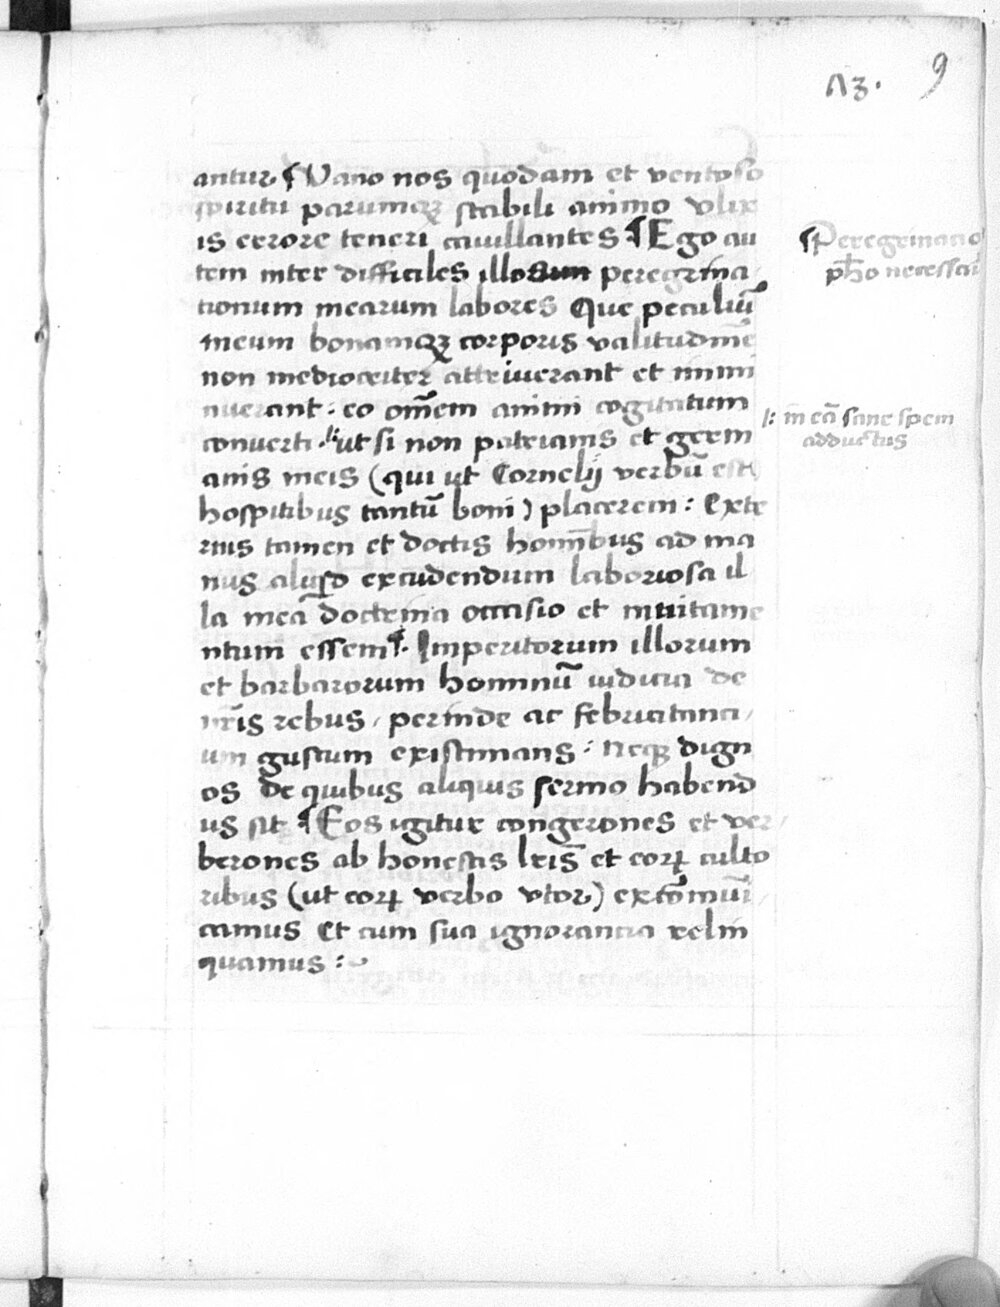 A3. 9
antur ¶ Vano nos quodam et ventoso
spiritu parumqꝫ stabili animo vlix
is errore teneri cauillantes ¶ Ego au
tem inter difficiles illosum peregrina
tionum mearum labores Que peculiū
meum bonamqꝫ corporis valitudinē
non mediocriter attriuerant et immi
nuerant : eo om̄em animi cogitatum
conuerti ut si non patrianis et germ
anis meis (qui ut Cornelij verbū est
hospitibus tantū boni) placerem : Exte
riis tamen et doctis homībus ad ma
nus aliqͥd excudendum laboriosa il
la meā doctrina occasio et inuitame
ntum essem ¶. Imperitorum illorum
et barbarorum hominū iudicia de
nr̄is rebus / perinde ac febricitanti /
um gustum existimans : neqꝫ dign
os de quibus aliquis sermo habend
us sit ¶ Eos igitur congerones et ver /
berones ab honestis lr̄is et eoꝝ culto
ribus (ut eoꝝ verbo vtor) excōmūi /
camus Et cum sua ignorantia relin
quamus :~
¶ Peregrinatio
ph̄o necessari
/: in eā sane spem
adductus